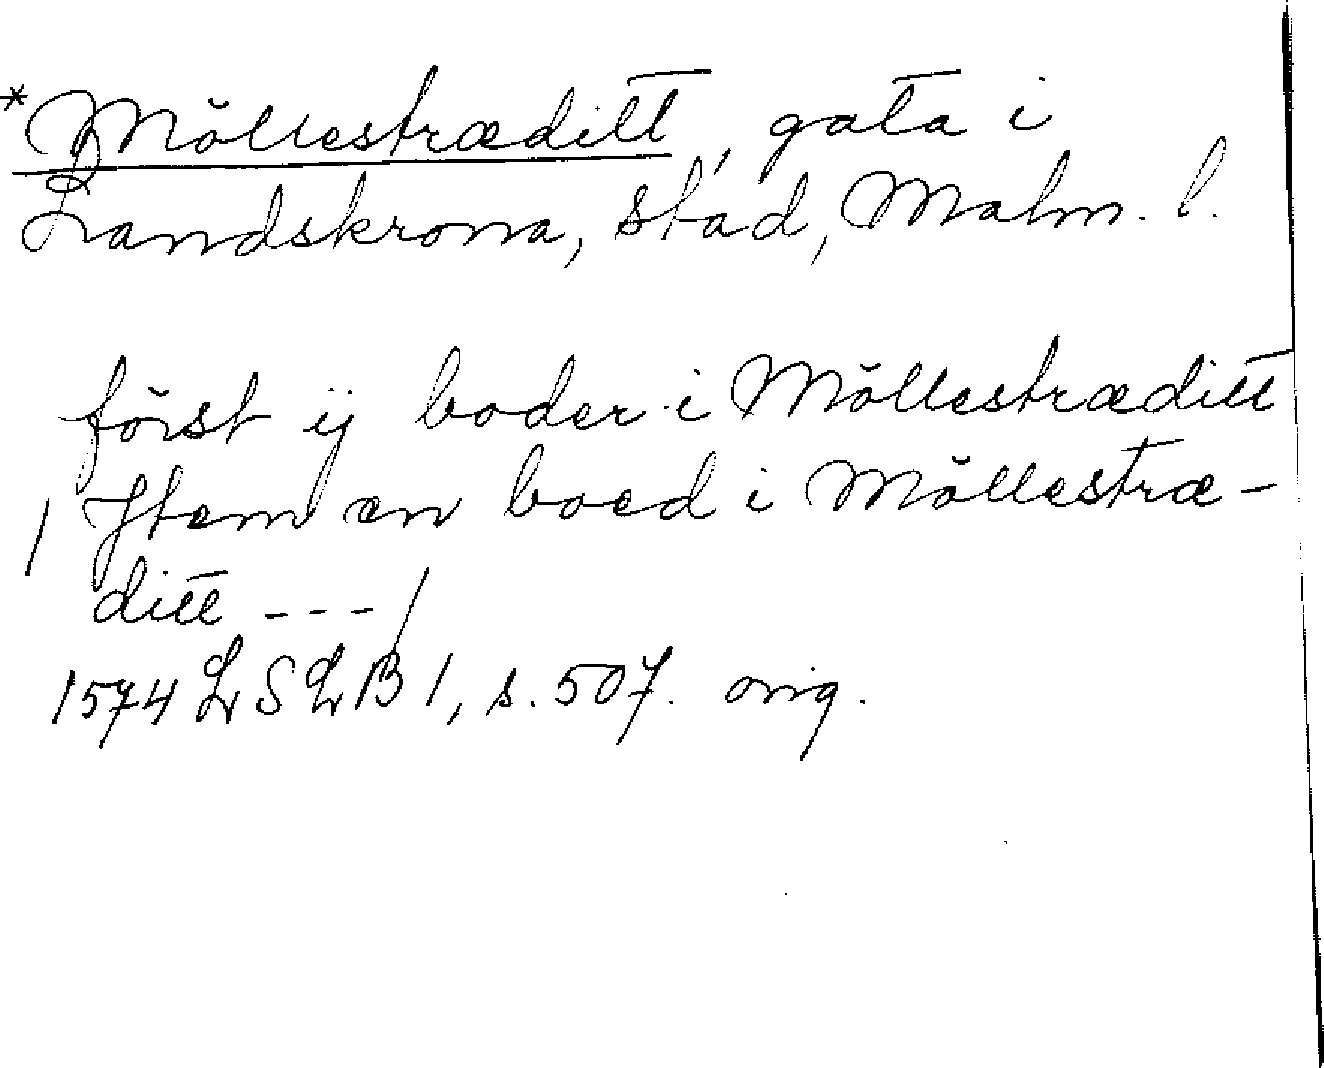 *Möllestræditt, gata i
Landskrona, stad, Malm. l.
först ij boder i Möllestræditt
/ Jtem en boed i Möllestræ-
ditt - - - /
1574 LSLB 1, s. 507. orig.